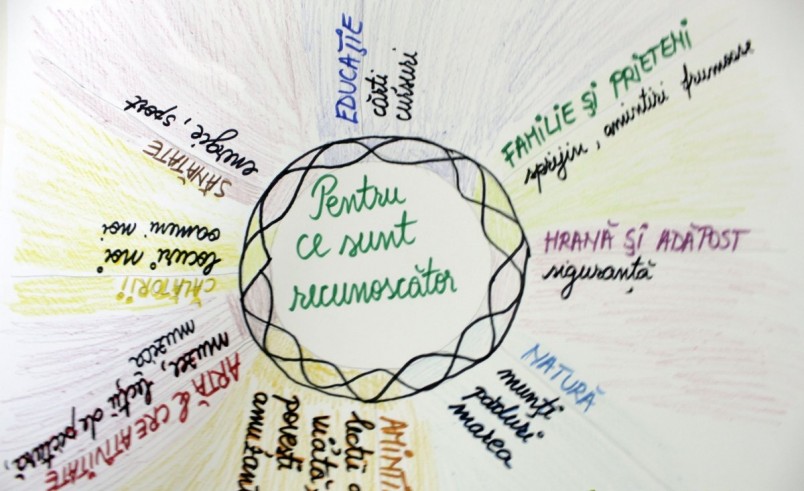 Pentru
ce sunt
recunoscător
EDUCAȚIE
cărti
cursuri
FAMILIE ȘI PRIETENI
sprijin, amintiri frumoase
HRANĂ ȘI ADĂPOST
siguranță
NATURĂ
munți
păduri
marea
lecții
viață
povești
ARTĂ & CREATIVITATE
muzee, lecții de pictură,
muzica
CĂLĂTORII
locuri noi
oameni noi
SĂNĂTATE
energie, sport